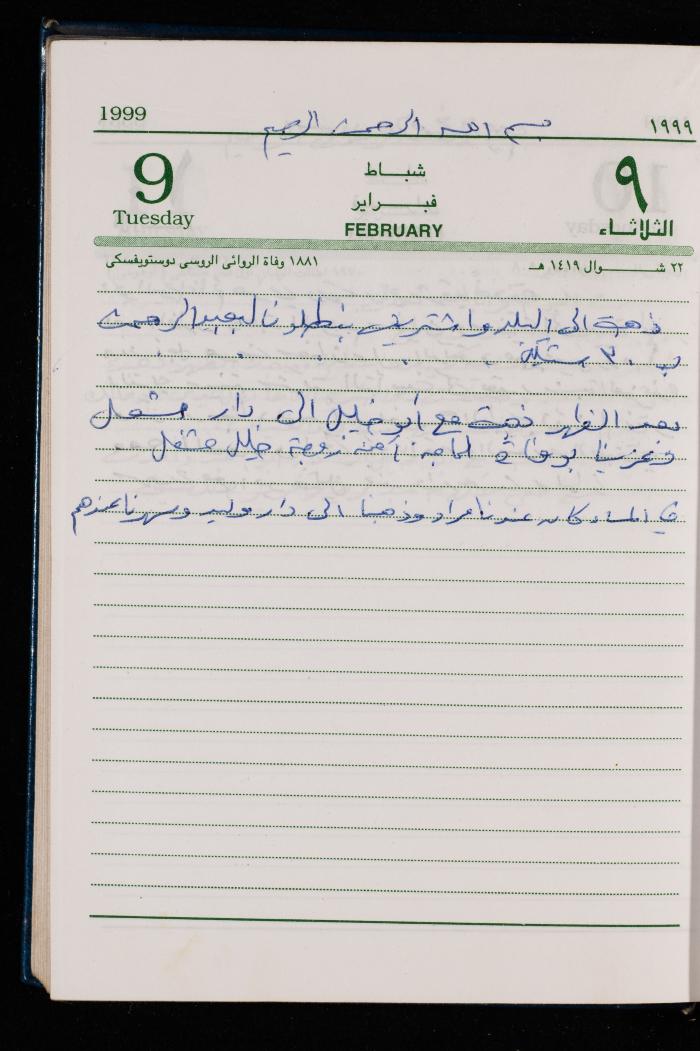 1999
١٩٩٩
بسم الله الرحمن الرحيم
9
Tuesday
شباط
فبراير
FEBRUARY
٩
الثلاثاء
٢٢ شوال ١٤١٩ هـ
١٨٨١ وفاة الروائى الروسى دوستويفسكى
ذهبت الى البلد واشتريت بنطلونا لعبد الرحمن
ب ٣٠ شيكل
بعد الظهر ذهبت مع أبو خليل الى دار مشعل
وعزينا بوفاة الحاجة آمنة زوجة خليل مشعل
في المساء كان عندنا مراد وذهبنا الى دار وليد وسهرنا عندهم